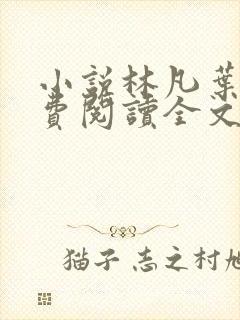 小説林凡葉
費閱讀全文
猫子志之村旭